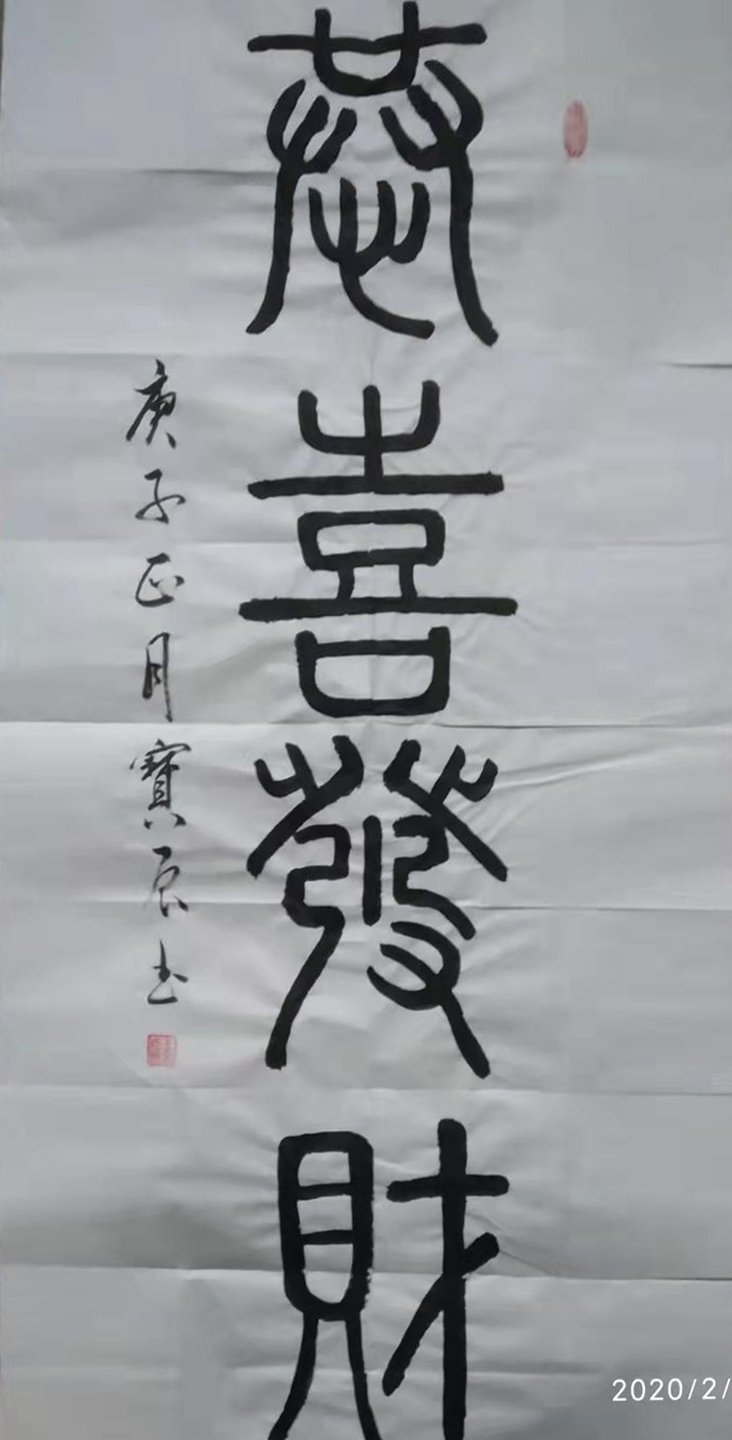 恭喜發財
庚子正月寶辰书
2020/2/